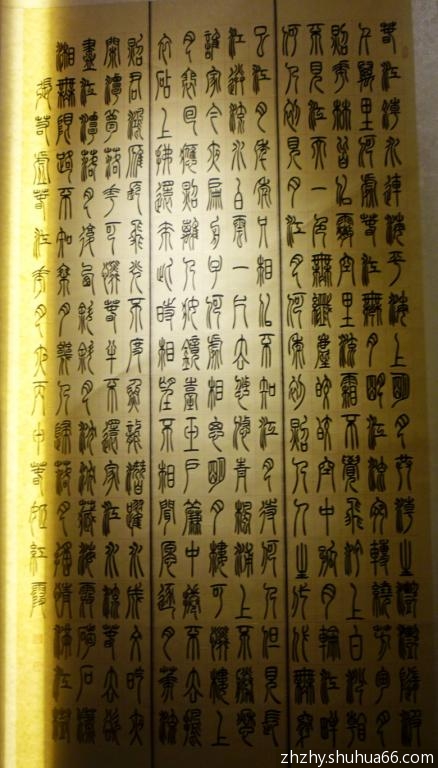 春江潮水連海平海上明月共潮生灩灩隨波
千萬里何處春江無月明江流宛轉繞芳甸月
照花林皆似霰空里流霜不覺飛汀上白沙看
不見江天一色無纖塵皎皎空中孤月輪江畔
何人初見月江月何年初照人人生代代無窮
已江月年年只相似不知江月待何人但見長
江送流水白雲一片去悠悠青楓浦上不勝愁
誰家今夜扁舟子何處相思明月樓可憐樓上
月徘徊應照離人妝鏡臺玉戶簾中卷不去搗
衣砧上拂還來此時相望不相聞願逐月華流
照君鴻雁長飛光不度魚龍潛躍水成文昨夜
閒潭夢落花可憐春半不還家江水流春去欲
盡江潭落月復西斜斜月沉沉藏海霧碣石瀟
湘無限路不知乘月幾人歸落月搖情滿江樹
張若虛春江花月夜丙申春姬紅霞
zhzhy.shuhua66.com